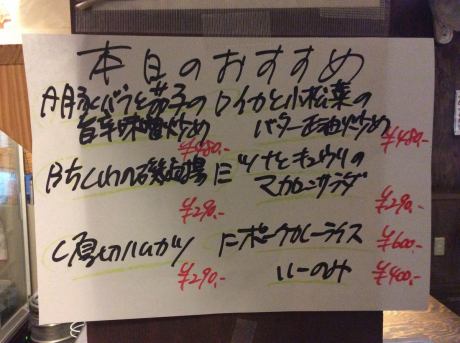 本日のおすすめ
A 豚バラと茄子の
旨辛味噌炒め
¥480.-
B ちくわの磯辺揚
¥290.-
C 厚切ハムカツ
¥290.-
D イカと小松菜の
バター醤油炒め
¥480.-
E ツナとキュウリの
マカロニサラダ
¥290.-
F ポークカレーライス ¥600.-
ルーのみ ¥400.-